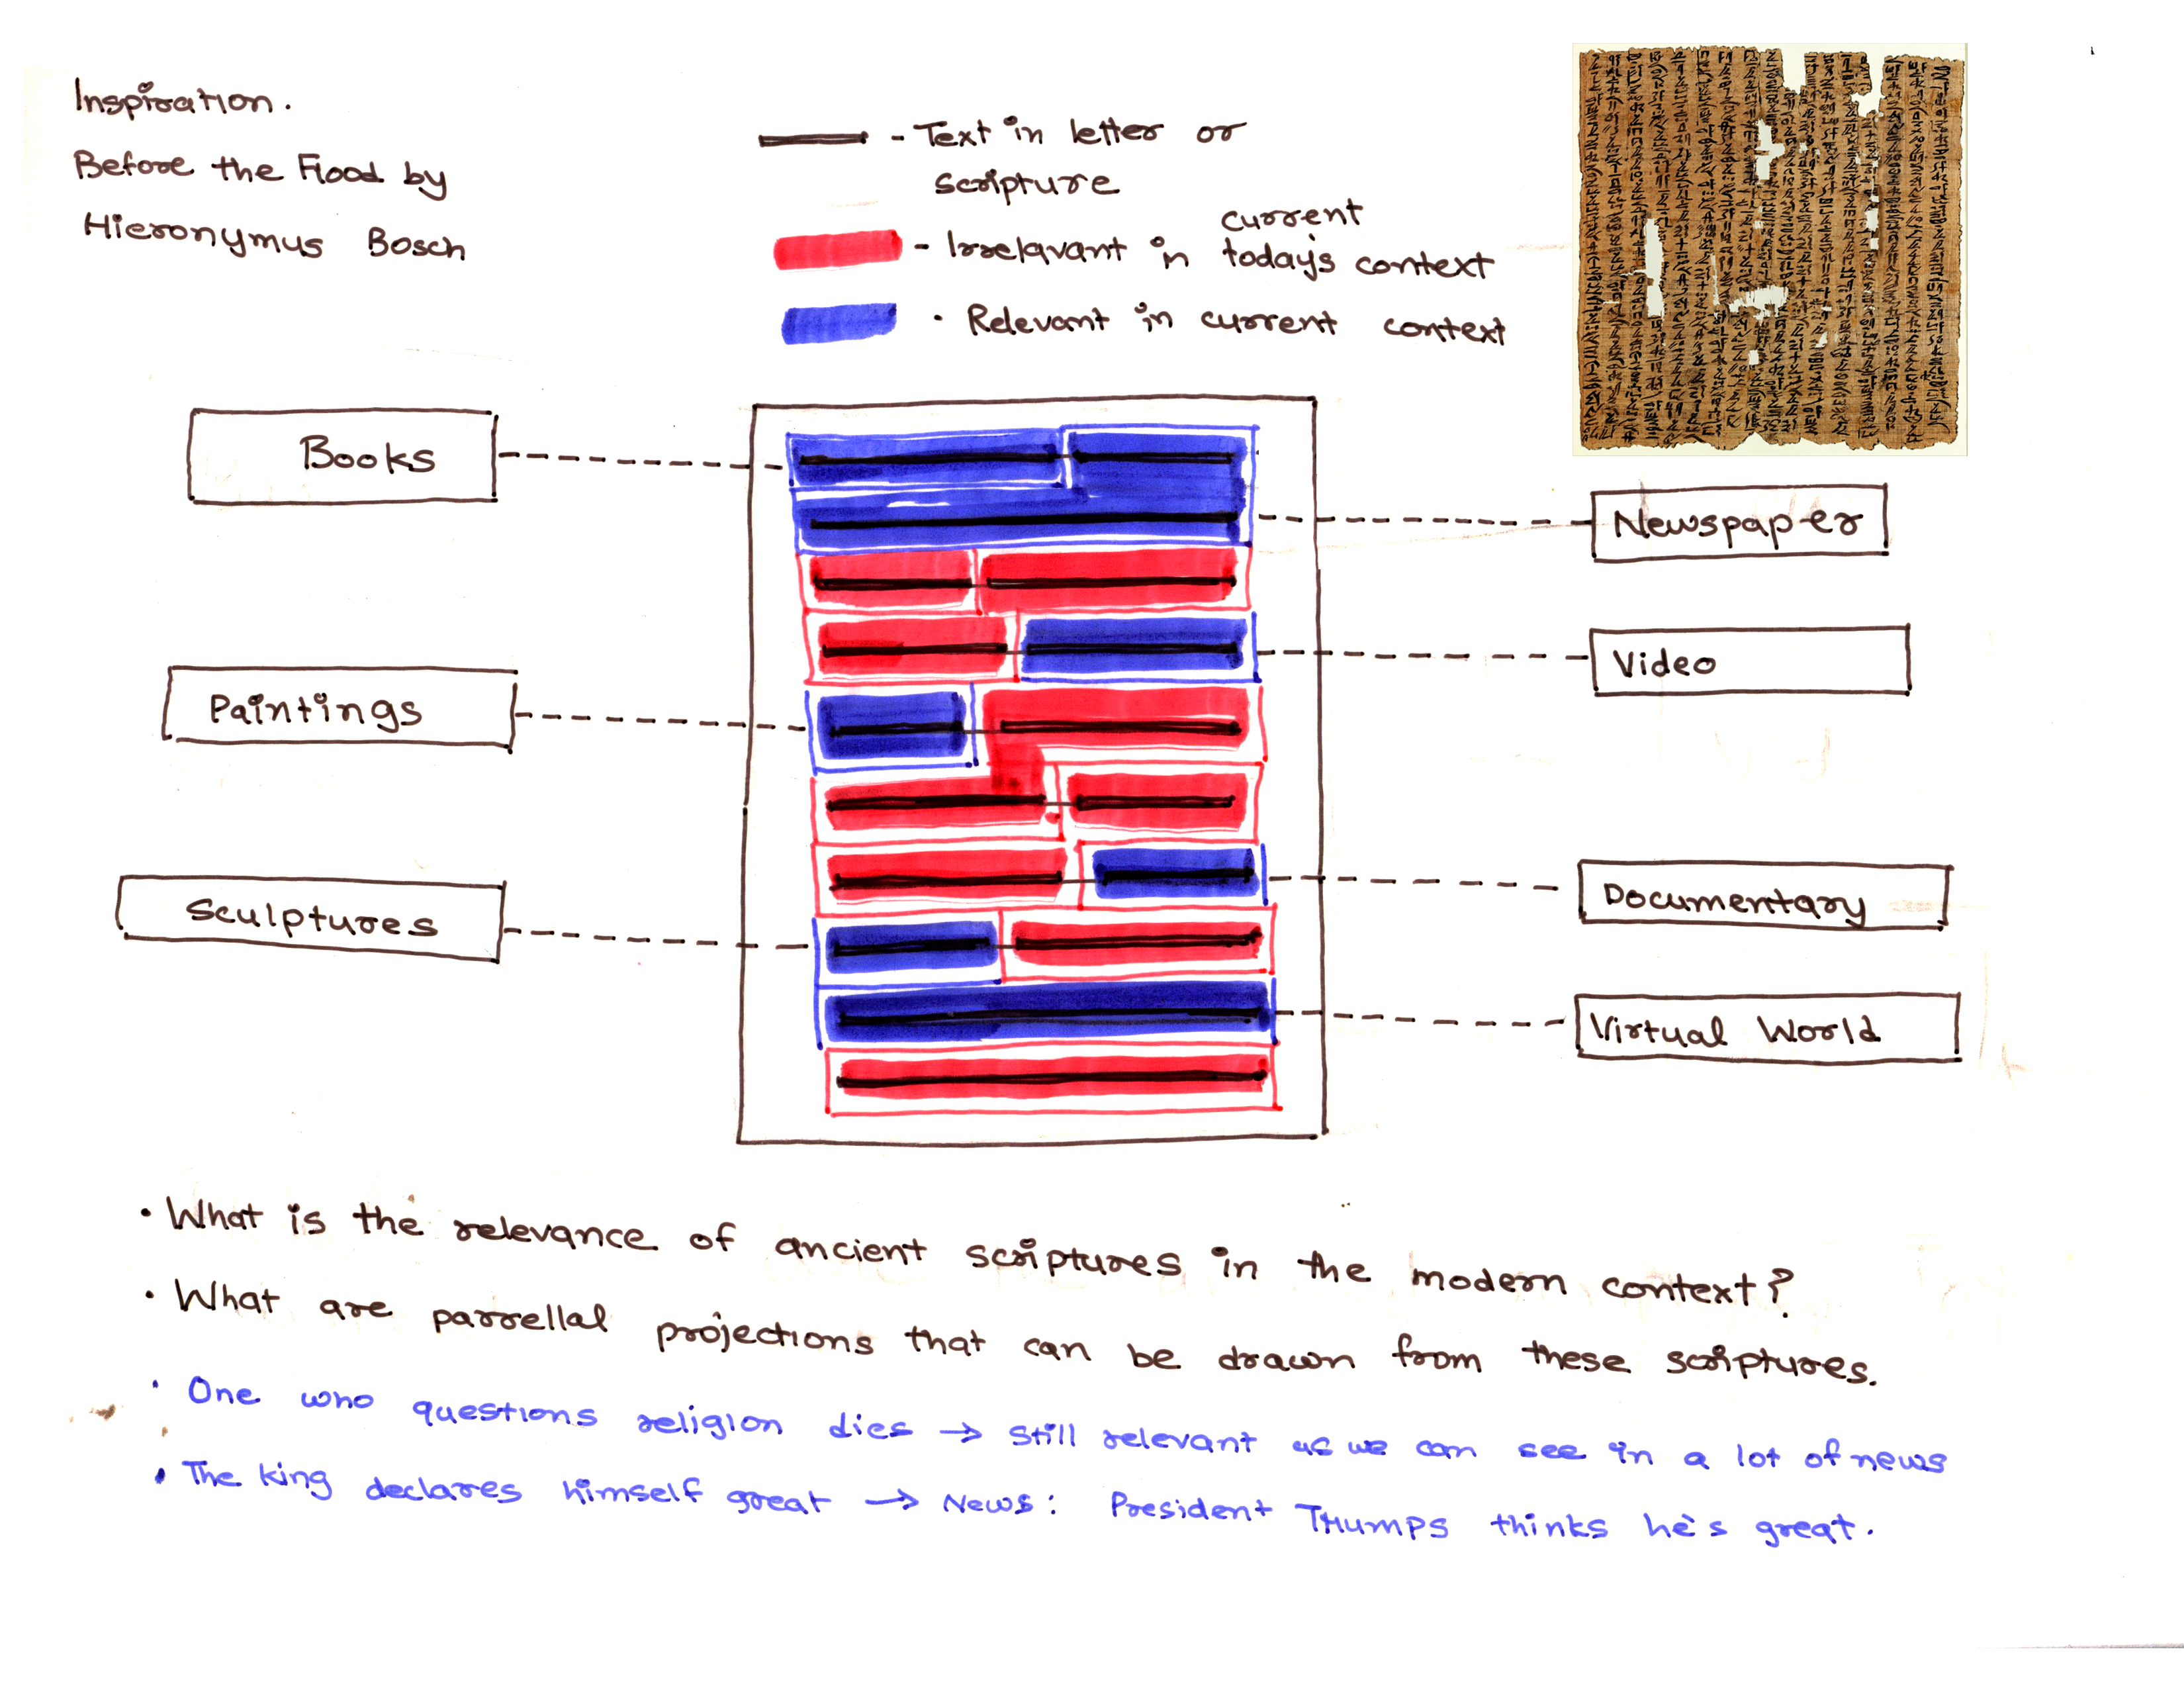 Inspiration.
Before the Flood by
Hieronymus Bosch
- Text in letter or
scripture
current
- Irrelavant in today's context
- Relevant in current context
Books
Newspaper
Video
Paintings
Documentary
Sculptures
Virtual World
• What is the relevance of ancient scriptures in the modern context?
• What are parrellal projections that can be drawn from these scriptures.
• One who questions religion dies → still relevant as we can see in a lot of news
• The king declares himself great → News: President THumps thinks he's great.